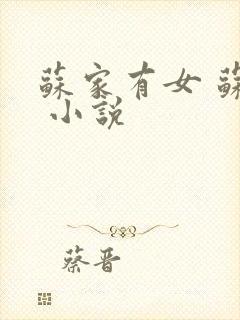 蘇家有女 蘇
小説
蔡晋